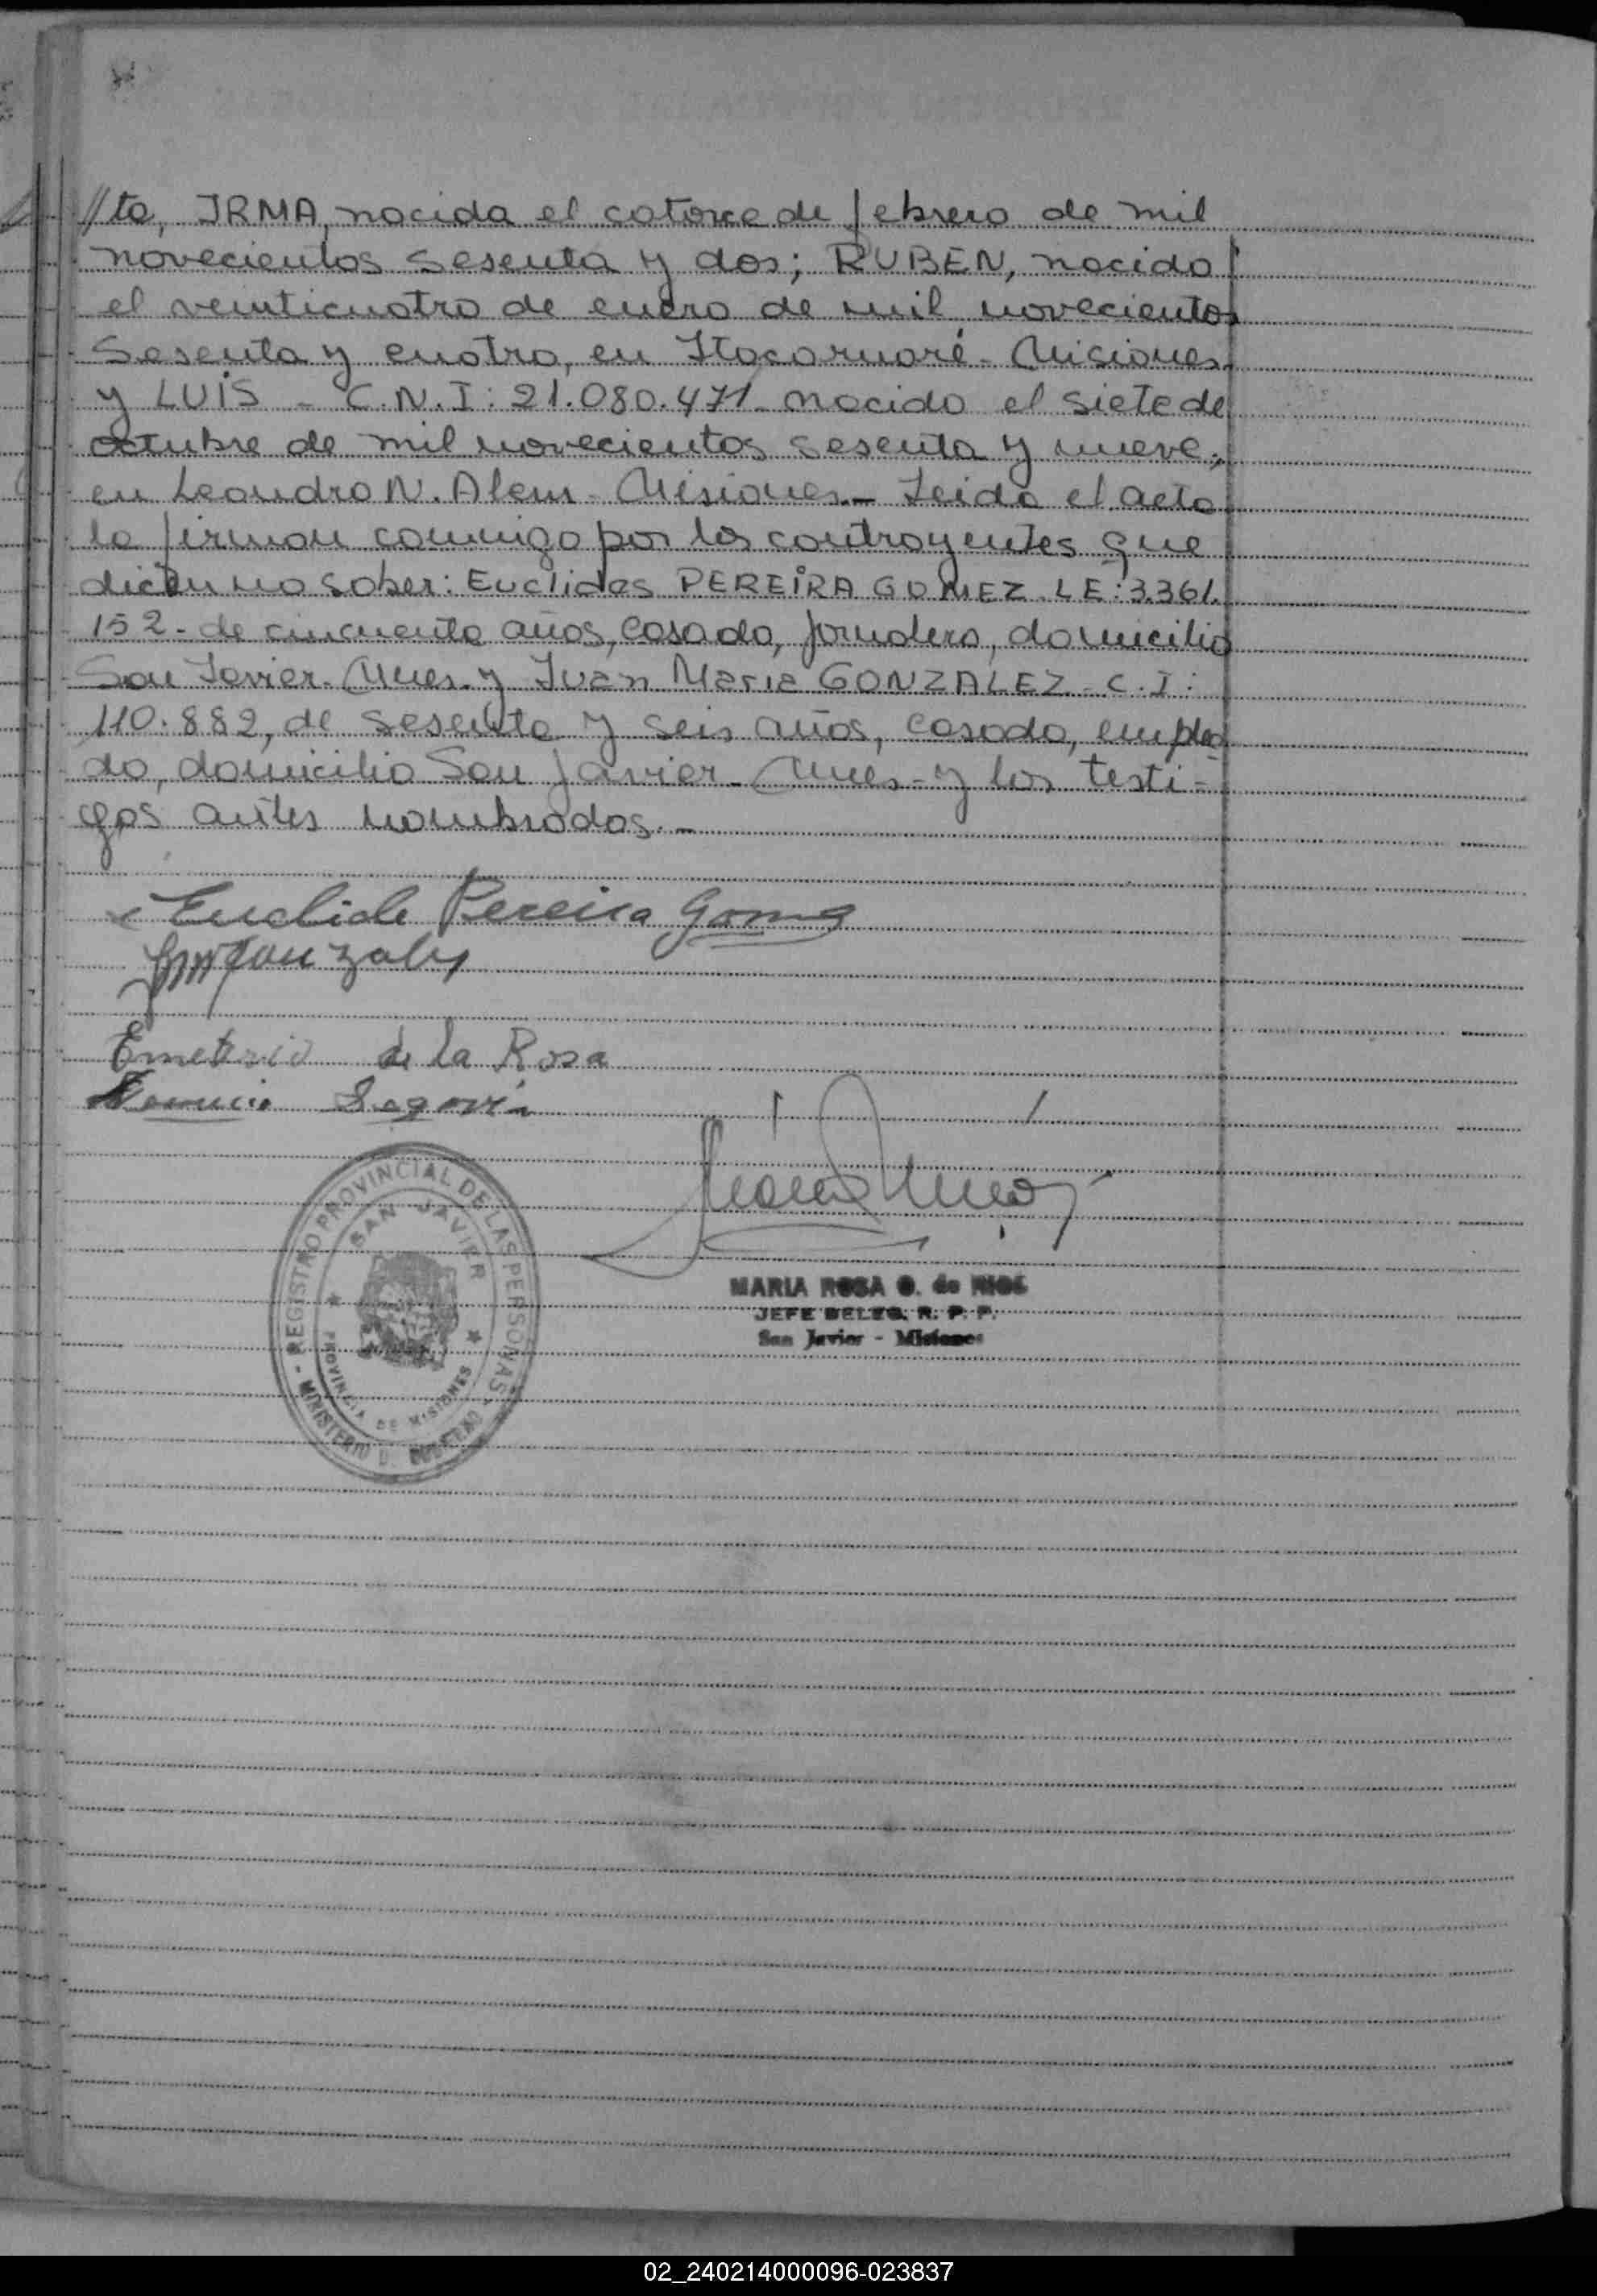 //ta, IRMA, nacida el catorce de febrero de mil
novecientos sesenta y dos; RUBEN, nacido
el veinticuatro de enero de mil novecientos
sesenta y cuatro, en Itacaruaré - Misiones
y LUIS - C.N.I: 21.080.471 - nacido el siete de
octubre de mil novecientos sesenta y nueve,
en Leandro N. Alem - Misiones.- Leida el acta
la firman conmigo por los contrayentes que
dicen no saber: Euclides PEREIRA GOMEZ - LE: 3.361.
152 - de cincuenta años, casado, jornalero, domicilio
San Javier - Mnes - y Juan Maria GONZALEZ - C.I:
110.882, de sesenta y seis años, casado, emplea
do, domicilio San Javier - Mnes - y los testi-
gos antes nombrados.-
Euclide Pereira Gomez
JM Gonzalez
Emeterio de la Rosa
Segovia
MARIA ROSA O. de RIOS
JEFE DELEG. R. P. P.
San Javier - Misiones
REGISTRO PROVINCIAL DE LAS PERSONAS - MINISTERIO DE GOBIERNO -
SAN JAVIER
PROVINCIA DE MISIONES
02_240214000096-023837